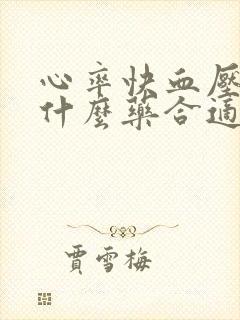 心率快血壓
什麼藥合適
賈雪梅